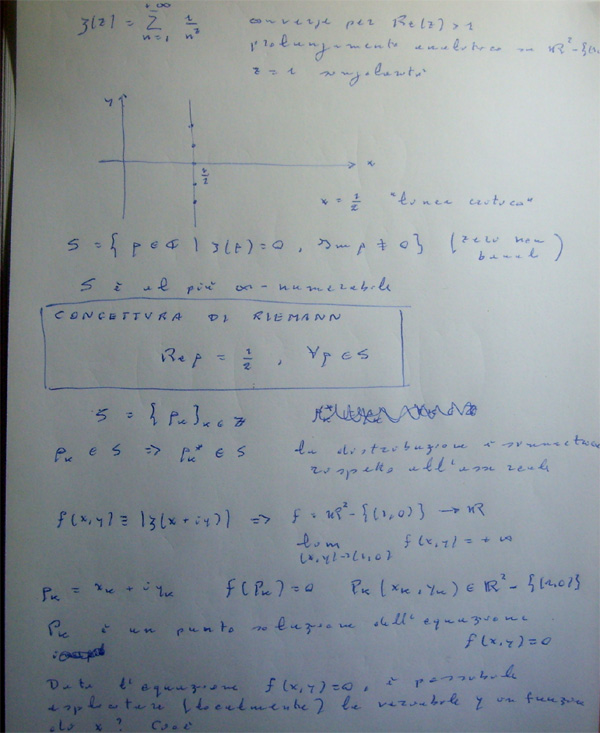 ζ(z) = Σ_{n=1}^{+∞} 1/n^z converge per Re(z) > 1
prolungamento analitico su ℝ²-{(1,
z = 1 singolarità
y
x
1/2
x = 1/2 "linea critica"
S = { ρ ∈ ℂ | ζ(ρ) = 0 , Im ρ ≠ 0 } (zero non
banali)
S è al più ∞-numerabile
CONGETTURA DI RIEMANN
Re ρ = 1/2 , ∀ρ ∈ S
S = { ρ_k }_{k ∈ ℤ}
ρ_k ∈ S => ρ_k* ∈ S la distribuzione è simmetrica
rispetto all'asse reale
f(x,y) ≡ |ζ(x+iy)| => f: ℝ²-{(1,0)} → ℝ
lim_{(x,y)→(1,0)} f(x,y) = +∞
ρ_k = x_k + iy_k f(P_k) = 0 P_k(x_k, y_k) ∈ ℝ²-{(1,0)}
P_k è un punto soluzione dell'equazione
f(x,y) = 0
Data l'equazione f(x,y)=0, è possibile
esplicitare (localmente) la variabile y in funzione
di x? Cioè